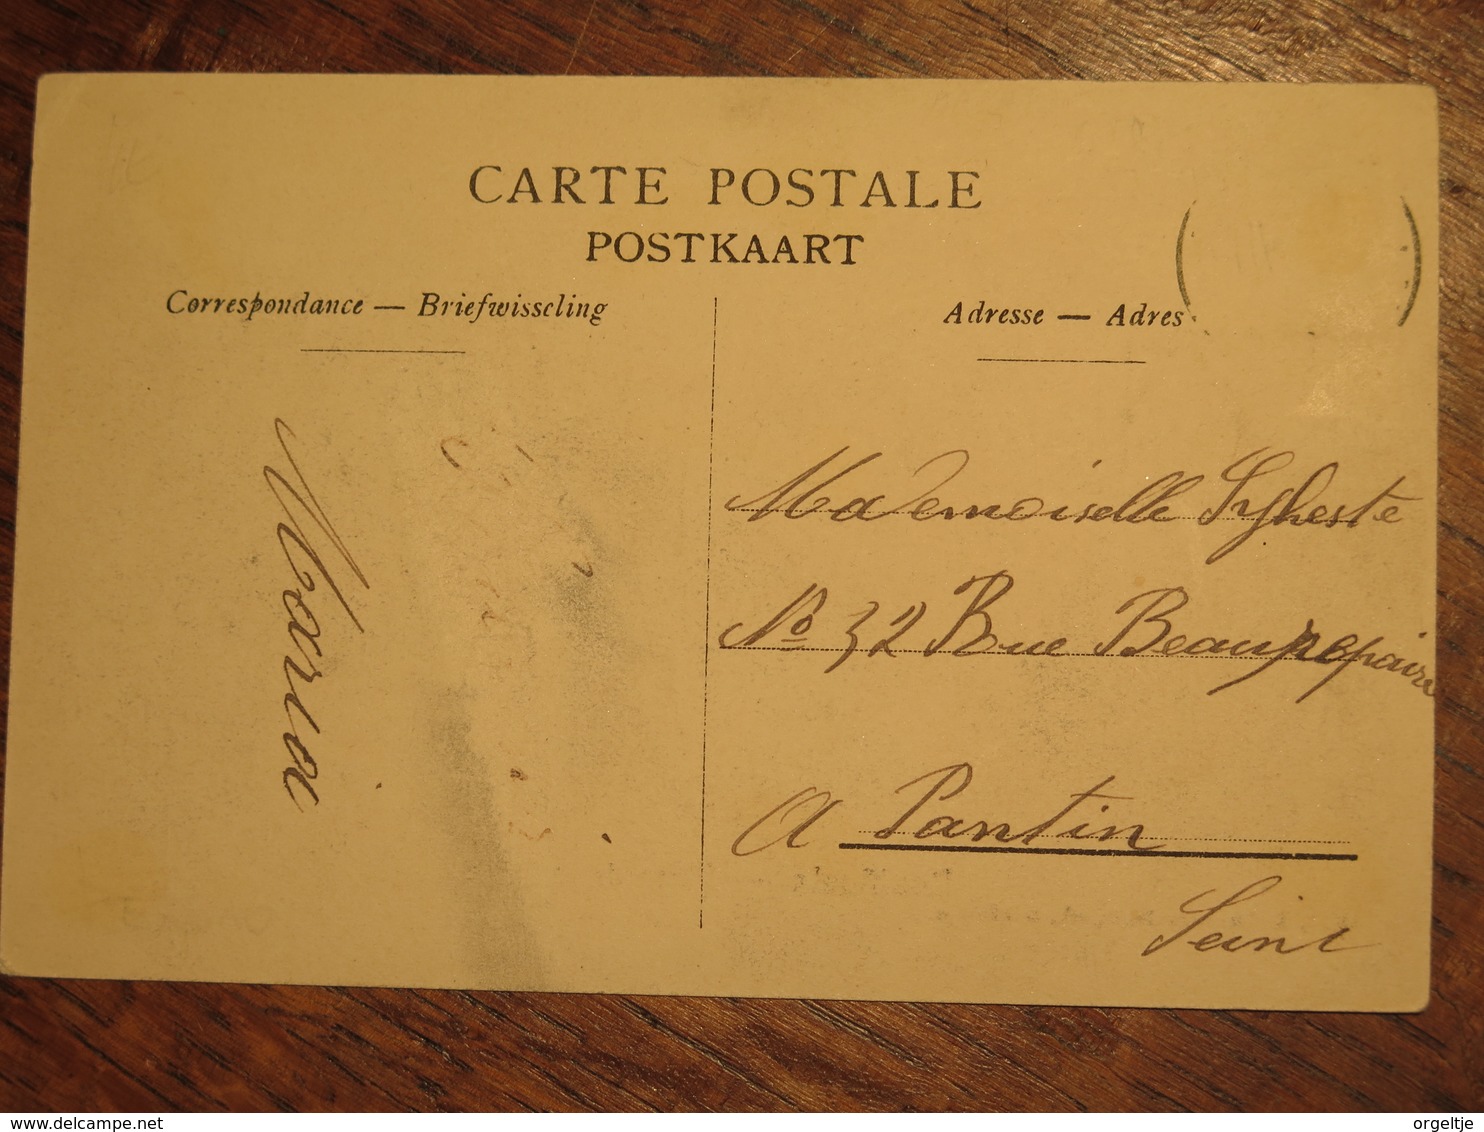 CARTE POSTALE
POSTKAART
Correspondance — Briefwisseling
Adresse — Adres
Maria
Mademoiselle
No 32 Rue Beaurepaire
A Pantin
Seine
delcampe.net
orgeltje